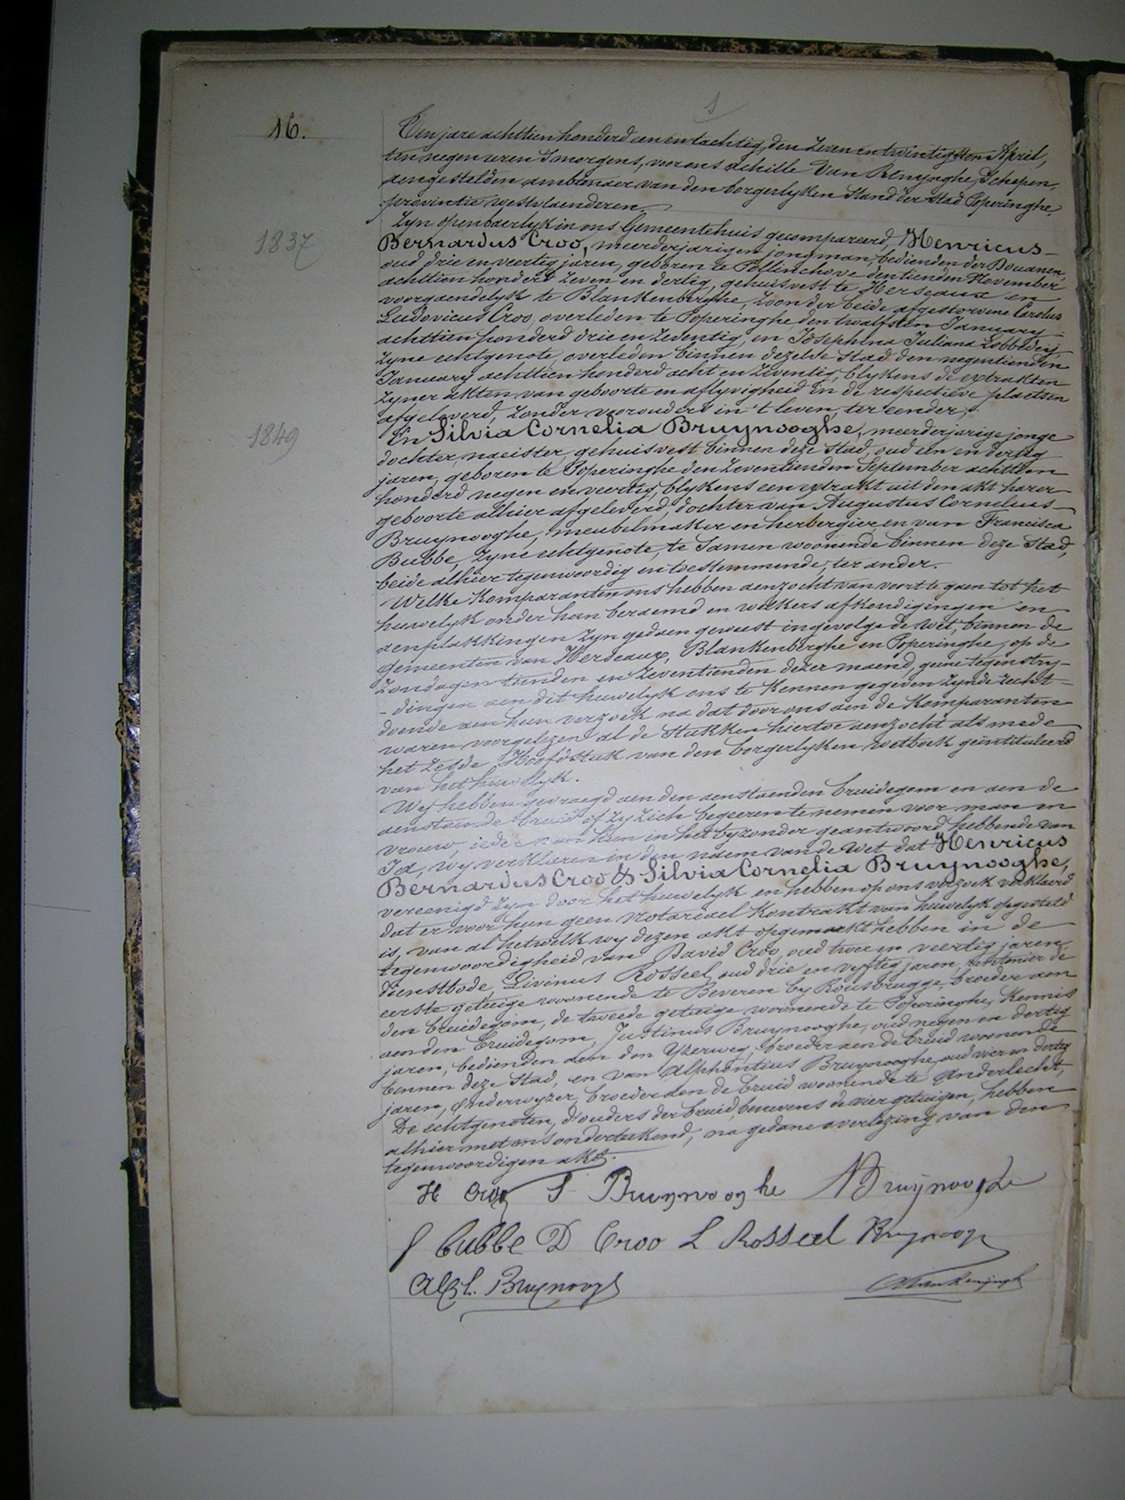 1
16.
Ten jare achttien honderd een en tachtig, den zeven en twintigsten April,
ten negen uren 's morgens, voor ons Achille Van Renynghe, Schepen,
aengestelden ambtenaer van den borgerlyken Stand der stad Poperinghe,
provintie Westvlaenderen,
Zyn openbaerlyk in ons Gemeentehuis gecompareerd, Henricus
1837
Bernardus Croo, meerderjarigen jongman, bedienden der Douanen,
oud drie en veertig jaren, geboren te Pollinchove den tienden November
achttien honderd zeven en dertig, gehuisvest te Herseaux en
voorgaendelyk te Blankenberghe, zoon der beide afgestorvene Carolus
Ludovicus Croo, overleden te Poperinghe den twalfsten January
achttien honderd drie en zeventig, en Josephina Juliana
zyne echtgenote, overleden binnen dezelve stad den negentienden
January achttien honderd acht en zeventig, blykens de extrakten
zyner akten van geboorte en aflyvigheid in de respectieve plaetsen
afgeleverd, zonder voorouders in 't leven, ter eender;
1849
En Silvia Cornelia Bruynooghe, meerderjarige jonge
dochter, naeister, gehuisvest binnen deze Stad, oud een en dertig
jaren, geboren te Poperinghe den zeventienden September achttien
honderd negen en veertig, blykens een extrakt uit den akt harer
geboorte alhier afgeleverd, dochter van Augustus Cornelius
Bruynooghe, meubelmaker en herbergier, en van Francisca
Bubbe, zyne echtgenote, te Samen woonende binnen deze Stad,
beide alhier tegenwoordig en toestemmende, ter ander.
Welke Komparanten ons hebben aenzocht van voort te gaen tot het
huwelyk onder hun beraemd en welkers afkondigingen en
aenplakkingen zyn gedaen geweest ingevolge de Wet, binnen de
gemeenten van Herseaux, Blankenberghe en Poperinghe, op de
Zondagen tienden en zeventienden dezer maend, geene tegenstry-
-dingen aen dit huwelyk ons te kennen gegeven zynde recht-
doende aen hun verzoek na dat door ons aen de Komparanten
waren voorgelezen al de Stukken hiertoe aenzocht als mede
het zesde Hoofdstuk van den borgerlyken wetboek geïntituleerd
van het huwelyk.
Wy hebben gevraegd aen den aenstaenden bruidegom en aen de
aenstaende bruid of zy zich begeeren te nemen voor man en
vrouw, ieder van hen in het byzonder geantwoord hebbende van
Ja, wy verklaren in den naem van de Wet dat Henricus
Bernardus Croo & Silvia Cornelia Bruynooghe,
vereenigd zyn door het huwelyk en hebben op ons verzoek verklaerd
dat er voor hun geen notariael Kontrakt van huwelyk opgesteld
is, van al hetwelk wy dezen akt opgemaekt hebben in de
tegenwoordigheid van David Croo, oud twee en veertig jaren,
dienstbode, Livinus Rosseel, oud drie en vyftig jaren, de
eerste getuige woonende te Beveren by Rousbrugge, broeder aen
den bruidegom, de tweede getuige woonende te Poperinghe, Kennis
aen den bruidegom, Justinus Bruynooghe, oud negen en dertig
jaren, bedienden aen den Yzerweg, broeder aen de bruid woonende
binnen deze Stad, en van Alphontius Bruynooghe, oud vier en dertig
jaren, Onderwyzer, broeder aen de bruid woonende te Anderlecht,
De echtgenoten, d'ouders der bruid, benevens de vier getuigen, hebben
alhier met ons onderteekend, na gedane overlezing van den
tegenwoordigen akt.
H Croo S Bruynooghe A Bruynooghe
f bubbe D Croo L Rosseel Bruynooghe
Alph. Bruynooghe A Van Renynghe